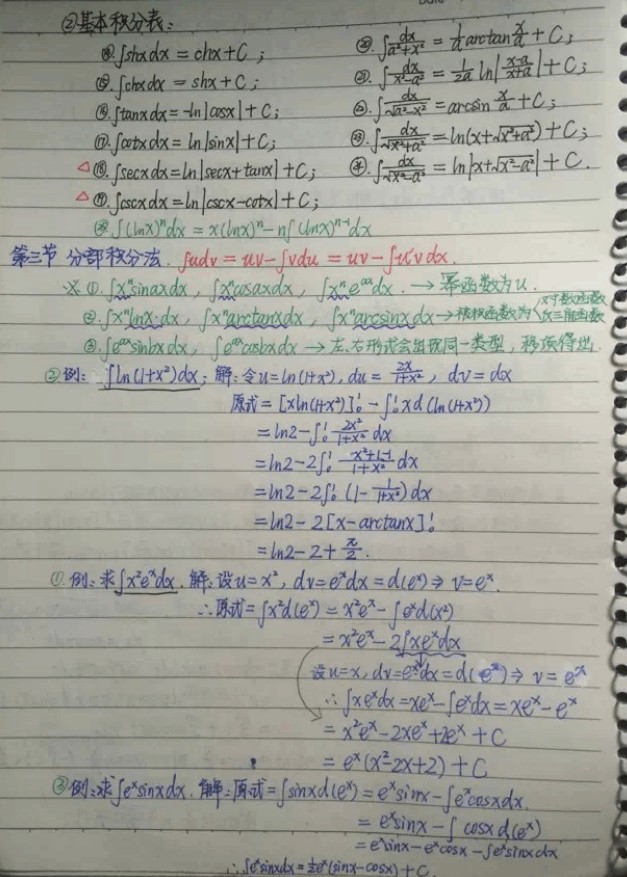 ②基本积分表:
⑭.∫shxdx = chx+C;
⑮.∫chxdx = shx+C;
⑯.∫tanxdx=-ln|cosx|+C;
⑰.∫cotxdx=ln|sinx|+C;
△⑱.∫secxdx=ln|secx+tanx|+C;
△⑲.∫cscxdx=ln|cscx-cotx|+C;
⑳.∫dx/(a²+x²) = 1/a arctan x/a + C;
㉑.∫dx/(x²-a²) = 1/2a ln|(x-a)/(x+a)|+C;
㉒.∫dx/√(a²-x²) = arcsin x/a + C;
㉓.∫dx/√(x²+a²) = ln(x+√(x²+a²))+C;
㉔.∫dx/√(x²-a²) = ln|x+√(x²-a²)|+C.
∫(lnx)ⁿdx = x(lnx)ⁿ-n∫(lnx)ⁿ⁻¹dx
第三节 分部积分法. ∫udv = uv-∫vdu = uv-∫u'vdx.
※①.∫xⁿsinaxdx, ∫xⁿcosaxdx, ∫xⁿeᵃˣdx. → 幂函数为u.
②.∫xⁿlnx·dx, ∫xⁿarctanxdx, ∫xⁿarcsinxdx→被积函数为〈对数函数 反三角函数
③.∫eᵃˣsinbxdx, ∫eᵃˣcosbxdx → 左、右形式会出现同一类型, 移项得出.
②例: ∫ln(1+x²)dx; 解:令u=ln(1+x²), du= 2x/(1+x²), dv=dx
原式=[xln(1+x²)]₀¹-∫₀¹xd(ln(1+x²))
=ln2-∫₀¹ 2x²/(1+x²) dx
=ln2-2∫₀¹ (x²+1-1)/(1+x²) dx
=ln2-2∫₀¹ (1-1/(1+x²))dx
=ln2-2[x-arctanx]₀¹
=ln2-2+π/2.
①.例:求∫x²eˣdx. 解:设u=x², dv=eˣdx=d(eˣ)⇒v=eˣ.
∴原式=∫x²d(eˣ)=x²eˣ-∫eˣd(x²)
=x²eˣ-2∫xeˣdx
设u=x, dv=eˣdx=d(eˣ)⇒v=eˣ
∴∫xeˣdx=xeˣ-∫eˣdx=xeˣ-eˣ
=x²eˣ-2xeˣ+2eˣ+C
=eˣ(x²-2x+2)+C
③例:求∫eˣsinxdx. 解:原式=∫sinxd(eˣ)=eˣsinx-∫eˣcosxdx.
=eˣsinx-∫cosxd(eˣ)
=eˣsinx-eˣcosx-∫eˣsinxdx
∴∫eˣsinxdx=½eˣ(sinx-cosx)+C.